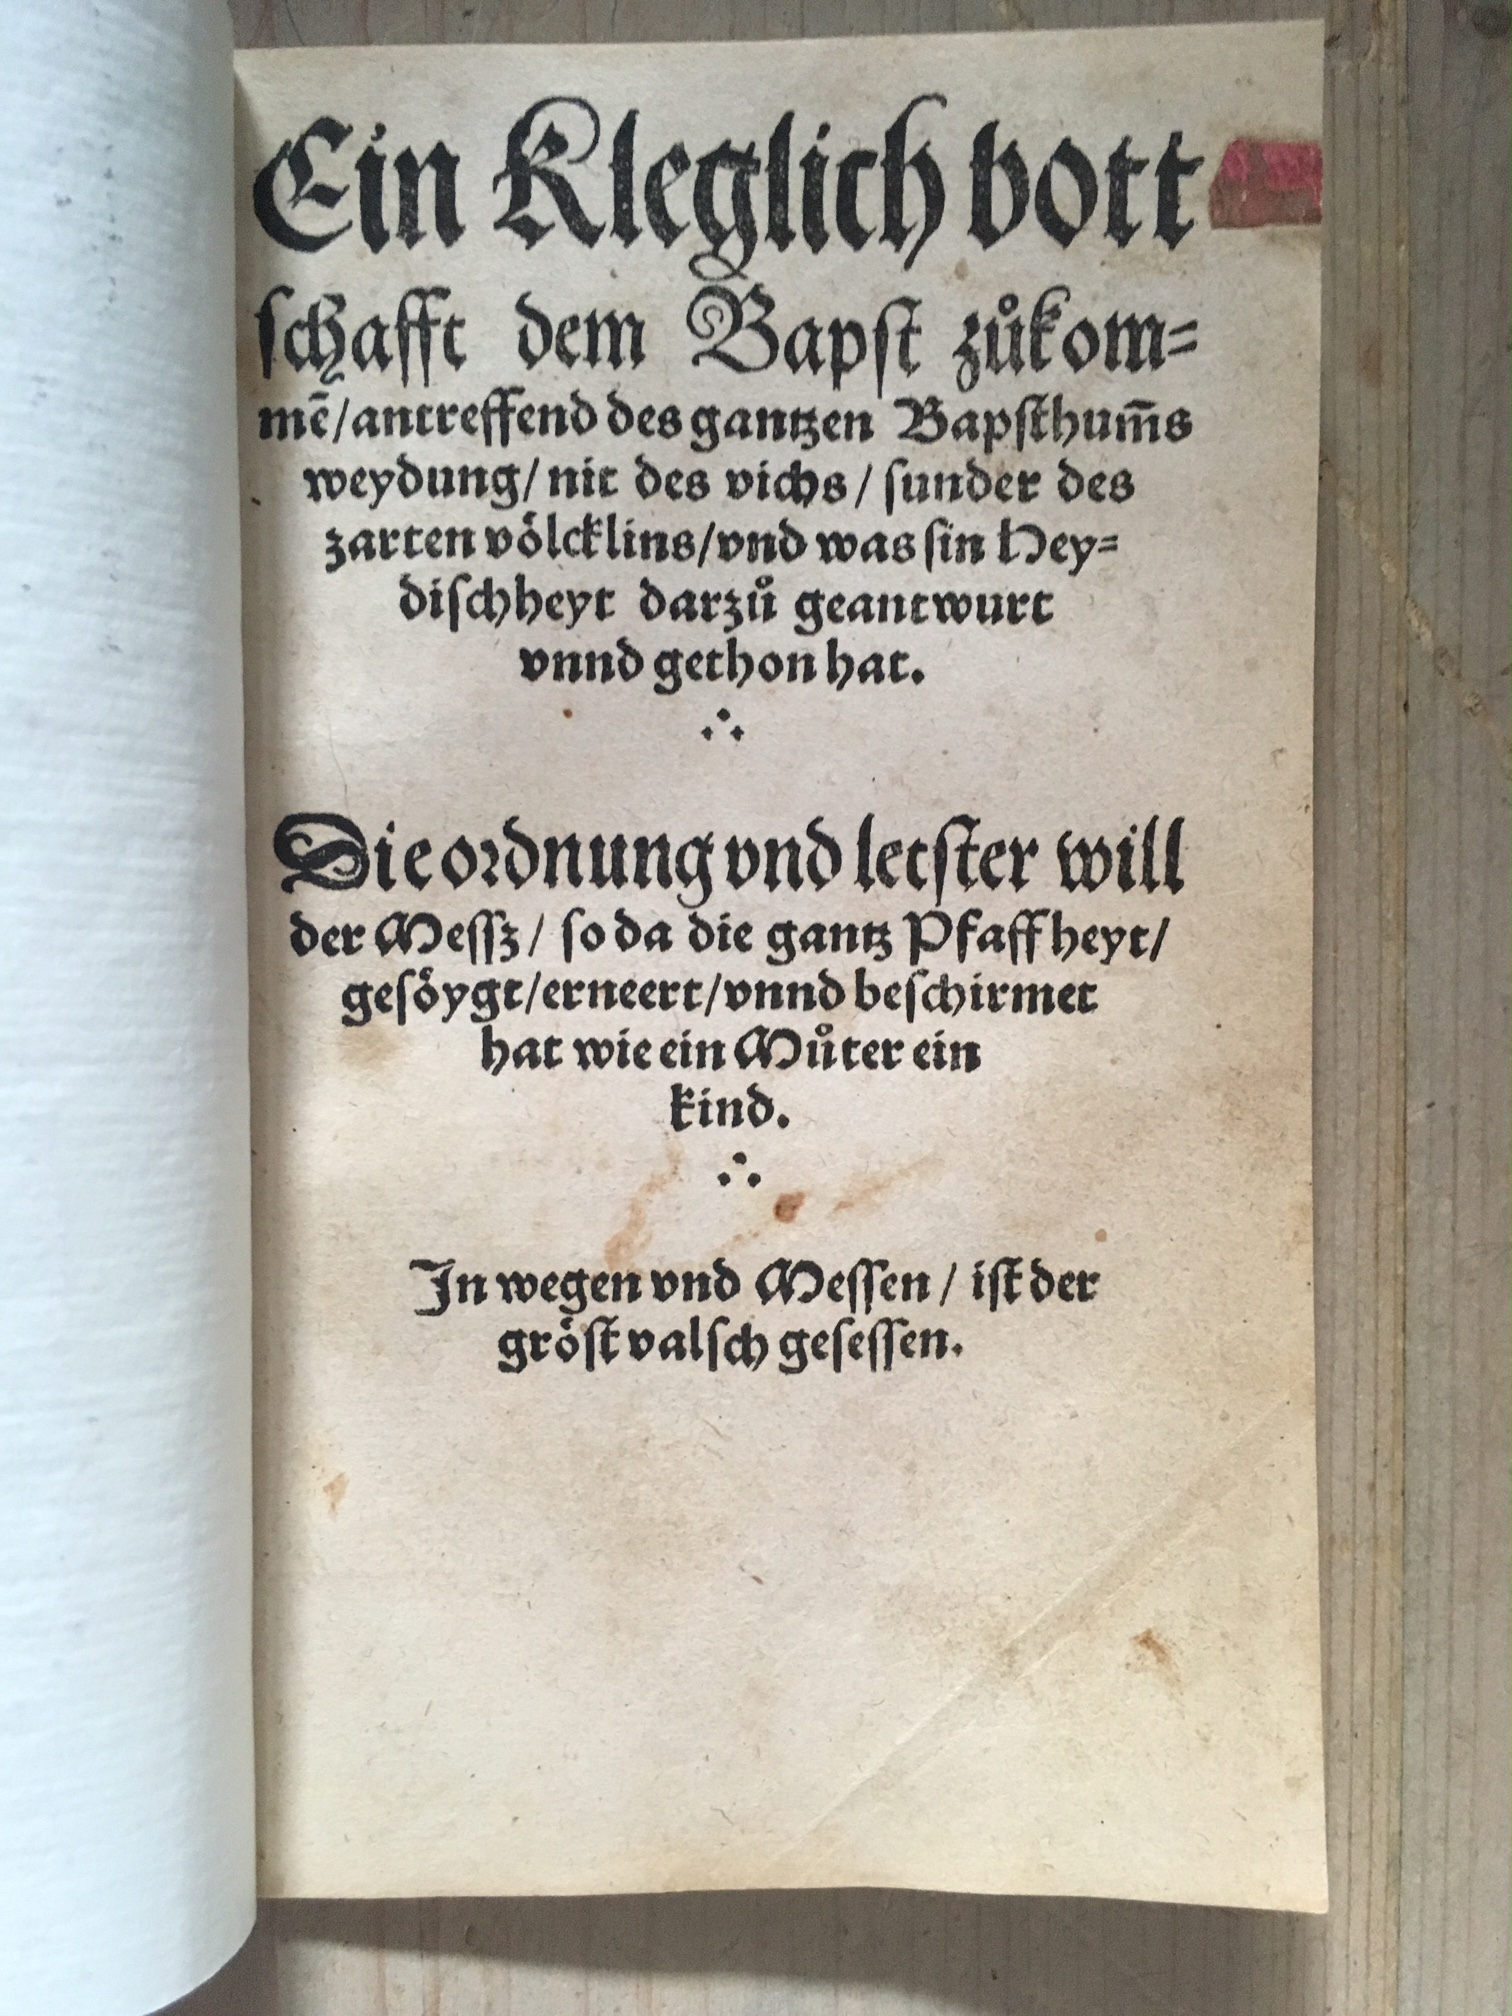 Ein Kleglich bott
ſchafft dem Bapſt zůkom⸗
mē/antreffend des gantzen Bapſthum̄s
weydung/ nit des vichs/ ſunder des
zarten völcklins/vnd was ſin Hey⸗
diſchheyt darzů geantwurt
vnnd gethon hat.
Die ordnung vnd letſter will
der Meſſz/ ſo da die gantz Pfaffheyt/
geſöygt/erneert/vnnd beſchirmet
hat wie ein Můter ein
kind.
In wegen vnd Meſſen/ iſt der
gröſt valſch geſeſſen.